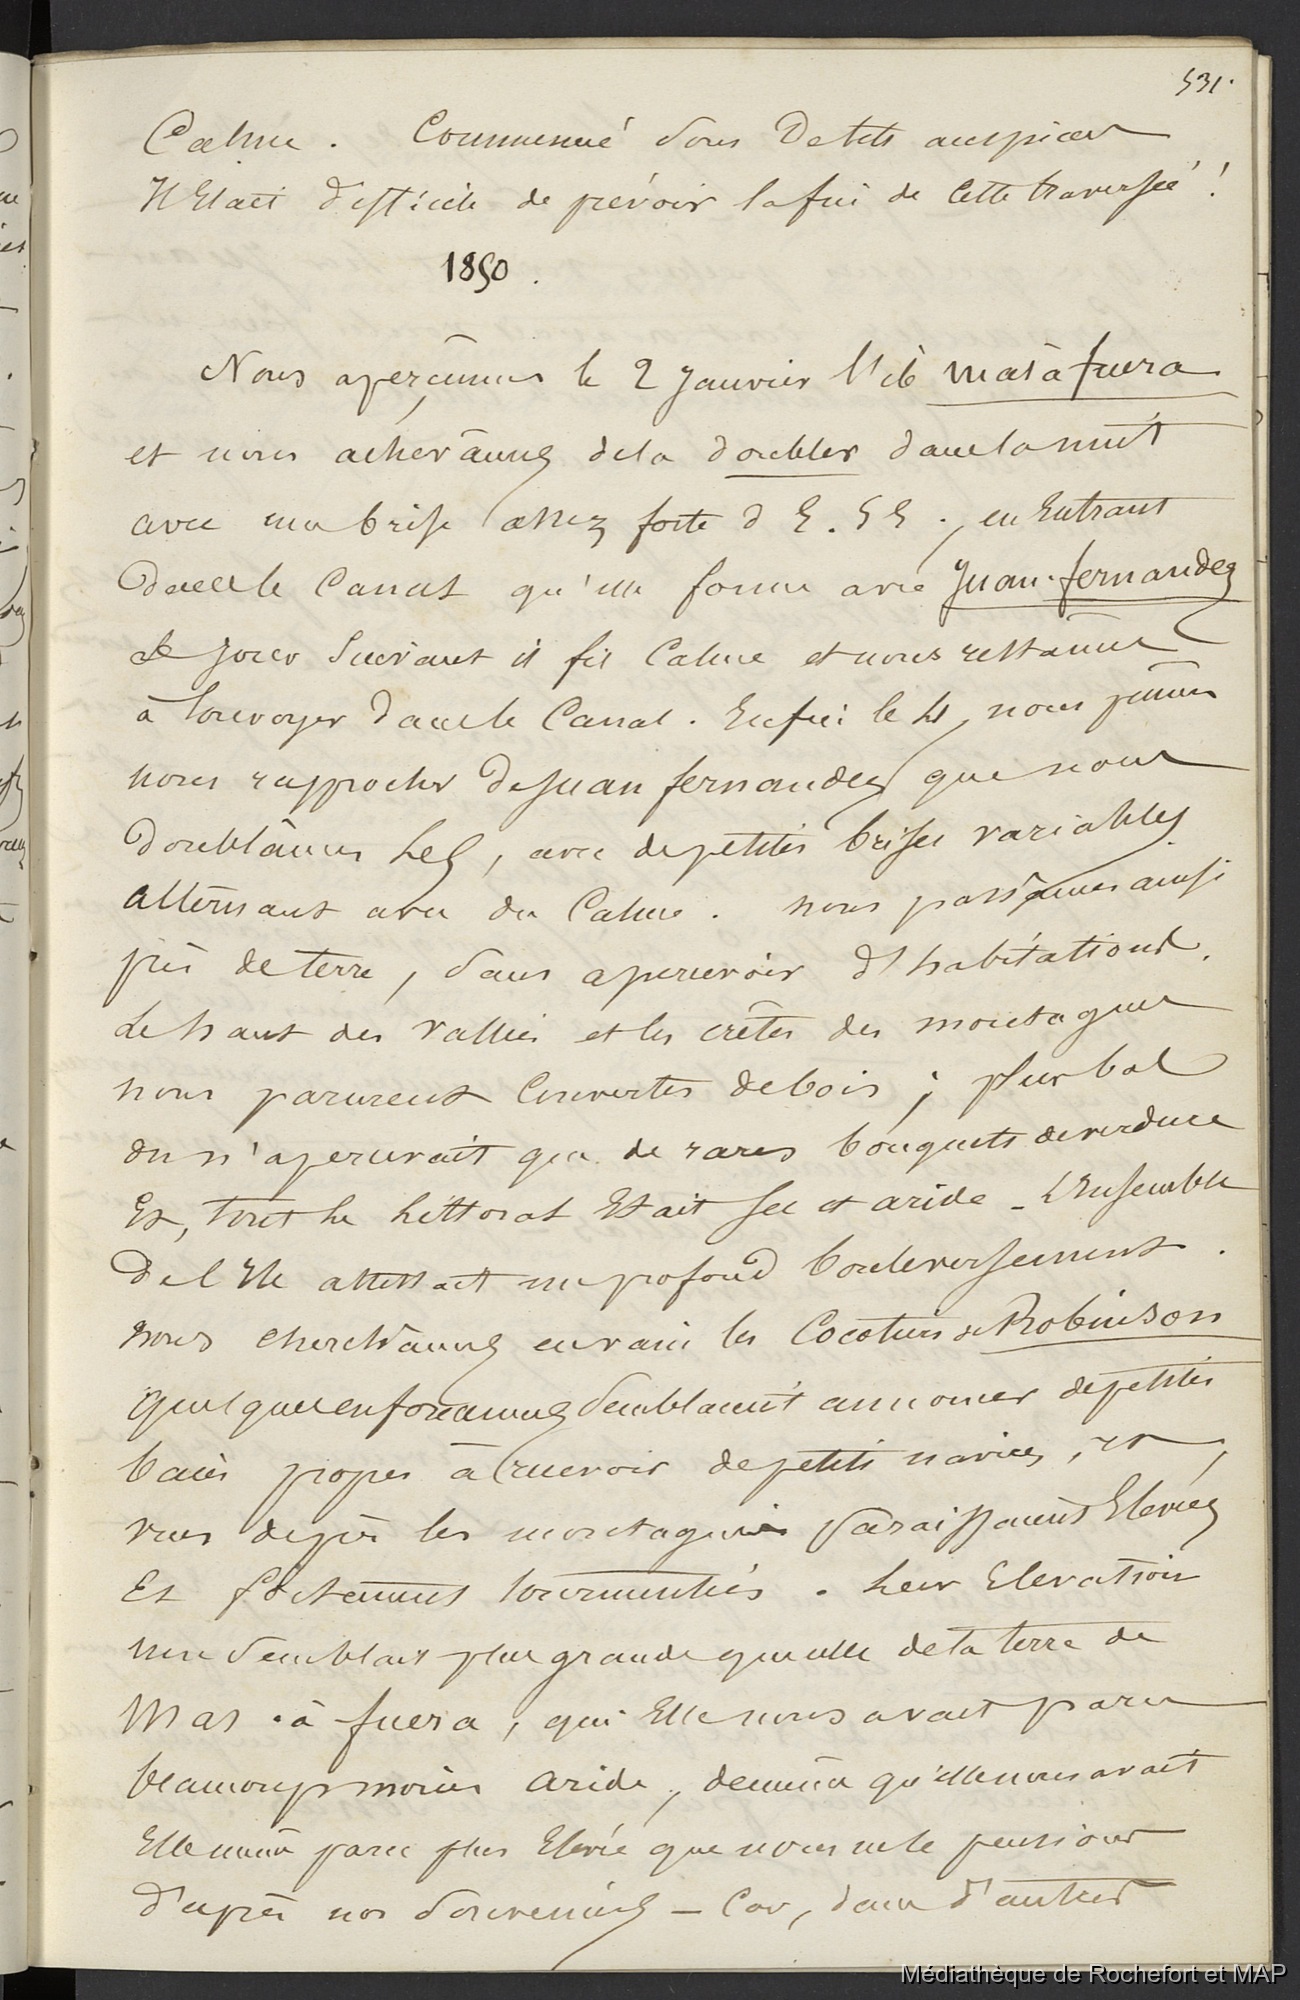 531.
Calme. Commencé sous de tels auspices
Il Etait difficile de prévoir la fin de cette traversée !
1850.
Nous aperçûmes le 2 Janvier l'ile mas à fuera
et nous achevâmes de la doubler dans la nuit
avec une brise assez forte d'E.SE., en Entrant
dans le Canal qu'elle forme avec Juan-fernandez
Le jour suivant il fit calme et nous restâmes
à louvoyer dans le Canal. Enfin le 4, nous pûmes
nous rapprocher de Juan fernandez que nous
doublâmes le 5, avec de petites brises variables
alternant avec du Calme. nous passâmes ainsi
près de terre, sans apercevoir d'habitations.
Le haut des vallées et les crêtes des montagnes
nous parurent couvertes de bois ; plus bas
on n'apercevait que de rares bouquets de verdure
Et, tout le littoral Etait sec et aride - L'Ensemble
de l'Ile attestait un profond bouleversement.
nous cherchâmes en vain les Cocotiers de Robinson
quelques enfoncemens semblaient annoncer de petites
baies propres à recevoir de petits navires, et,
vues de près les montagnes paraissaient Elevées
Et fortement tourmentées. Leur Elevation
me semblait plus grande que celle de la terre de
Mas-à-fuera, qui Elle nous avait paru
beaucoup moins aride, de même qu'elle nous avait
Elle même paru plus Elevée que nous ne le pensions
d'après nos souvenirs - Car, dans d'autres
Médiathèque de Rochefort et MAP